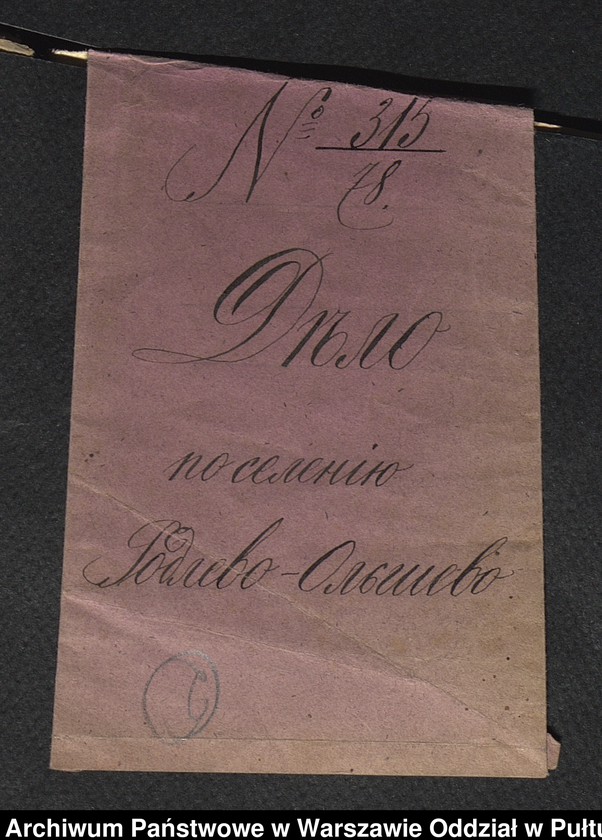 № 315
78.
Дѣло
по селенію
Годлево-Ольшево
Archiwum Państwowe w Warszawie Oddział w Pułtu